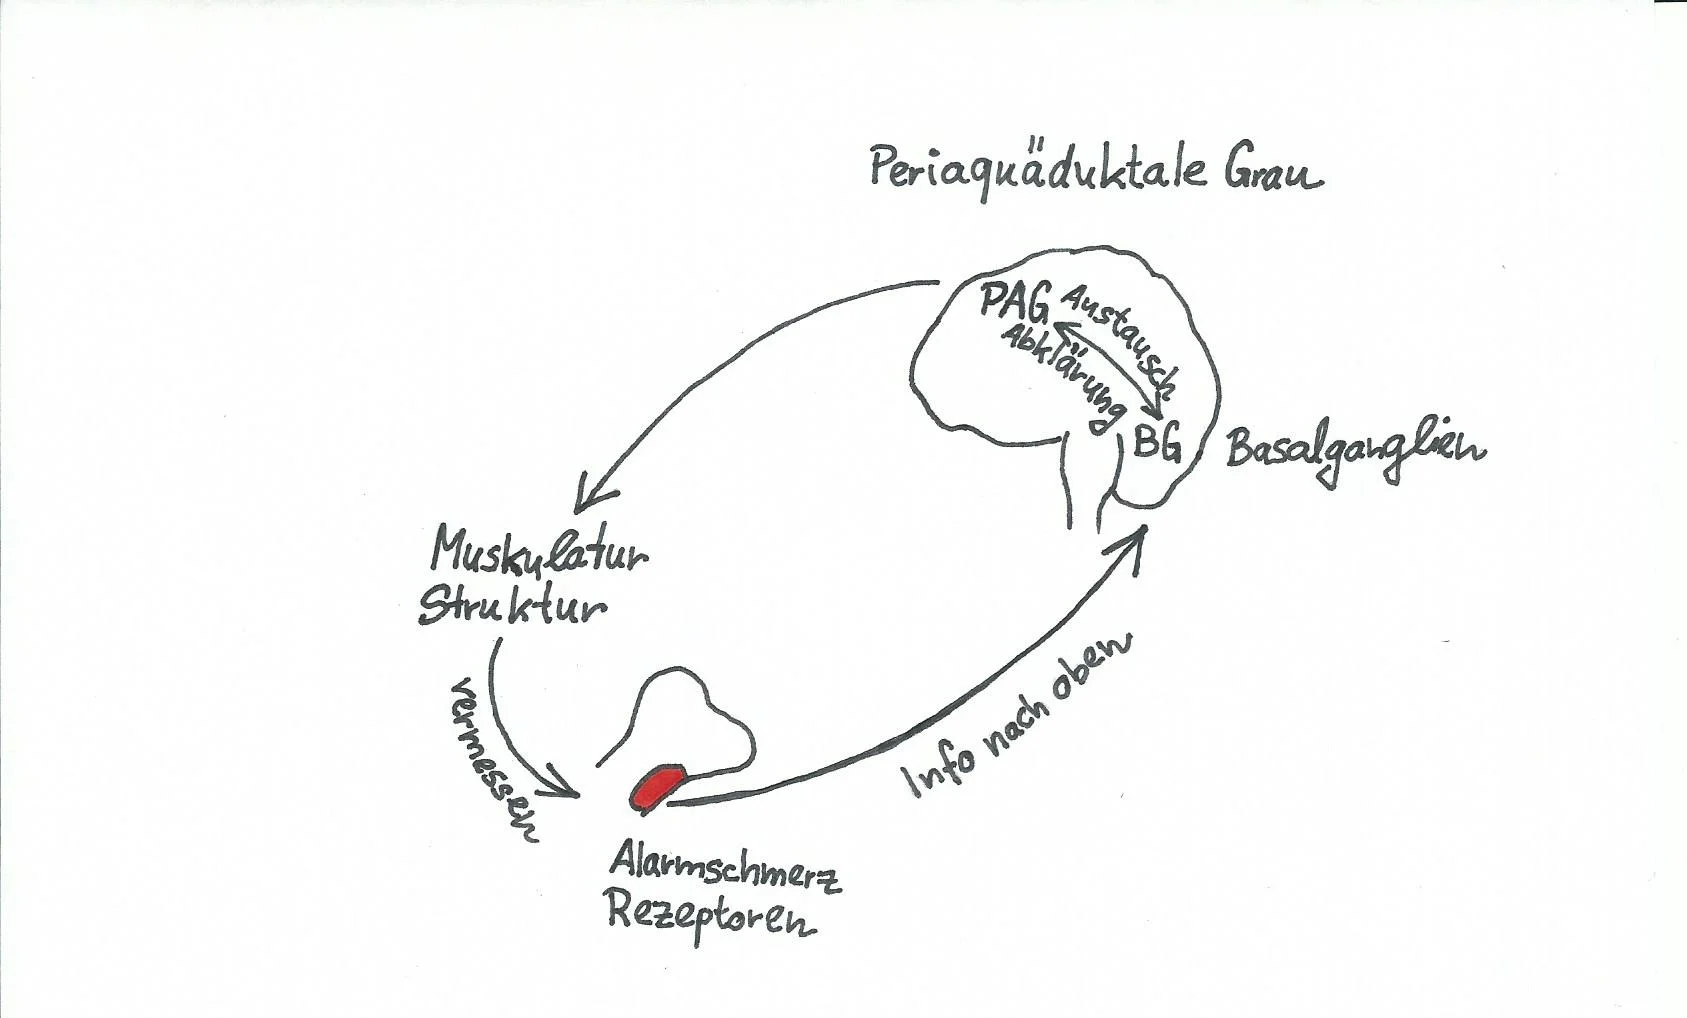 Periaquäduktale Grau
PAG
Austausch
Abklärung
BG
Basalganglien
Muskulatur
Struktur
vermessen
Info nach oben
Alarmschmerz
Rezeptoren